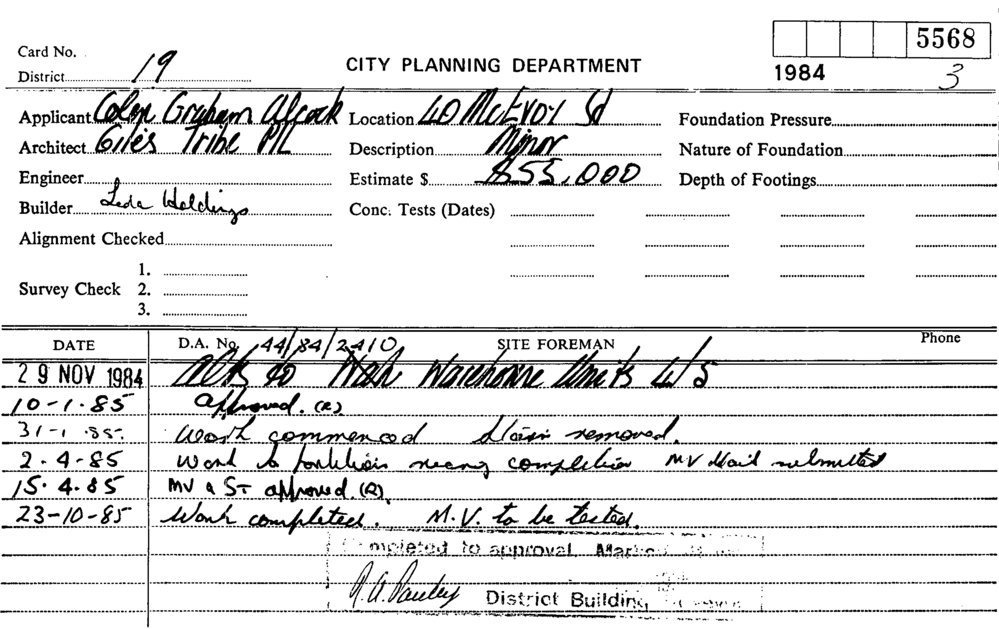 5568
Card No.
District 19
CITY PLANNING DEPARTMENT
1984 3
Applicant Colin Graham Alcock Location 40 McEvoy St Foundation Pressure
Architect Giles Tribe P/L Description Minor Nature of Foundation
Engineer Estimate $ $55,000 Depth of Footings
Builder Leda Holdings Conc. Tests (Dates)
Alignment Checked
1.
Survey Check 2.
3.
DATE D.A. No. 44/84/2410 SITE FOREMAN Phone
29 NOV 1984 Alts to Warehouse Units 4/5
10-1-85 Approved. (R)
31-1-85. Work commenced Stairs removed.
2.4-85 Work to partitions nearing completion MV submitted
15.4.85 MV & ST approved. (R).
23-10-85 Work completed. M.V. to be tested.
Completed to approval.
District Building